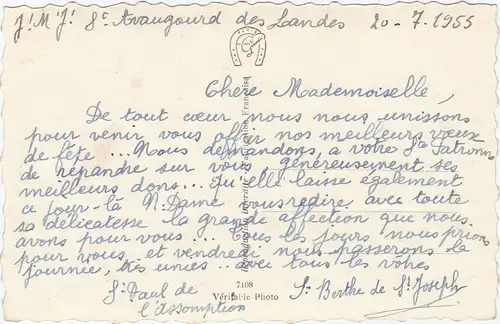 J! M J! St Avaugourd des Landes 20-7-1955
Chère Mademoiselle,
De tout cœur nous nous unissons
pour venir vous offrir nos meilleurs vœux
de fête... Nous demandons, à votre Ste Patronne
de répandre sur vous, généreusement ses
meilleurs dons... Qu'elle laisse également
ce jour-là N. Dame vous redire, avec toute
sa délicatesse la grande affection que nous
avons pour vous... Tous les jours nous prions
pour vous, et vendredi nous passerons la
journée, très unies.. avec tous les vôtres
Sr Paul de
l'Assomption
Sr Berthe de St Joseph
7108
Véritable Photo
Reproduction interdite Fabrication Française